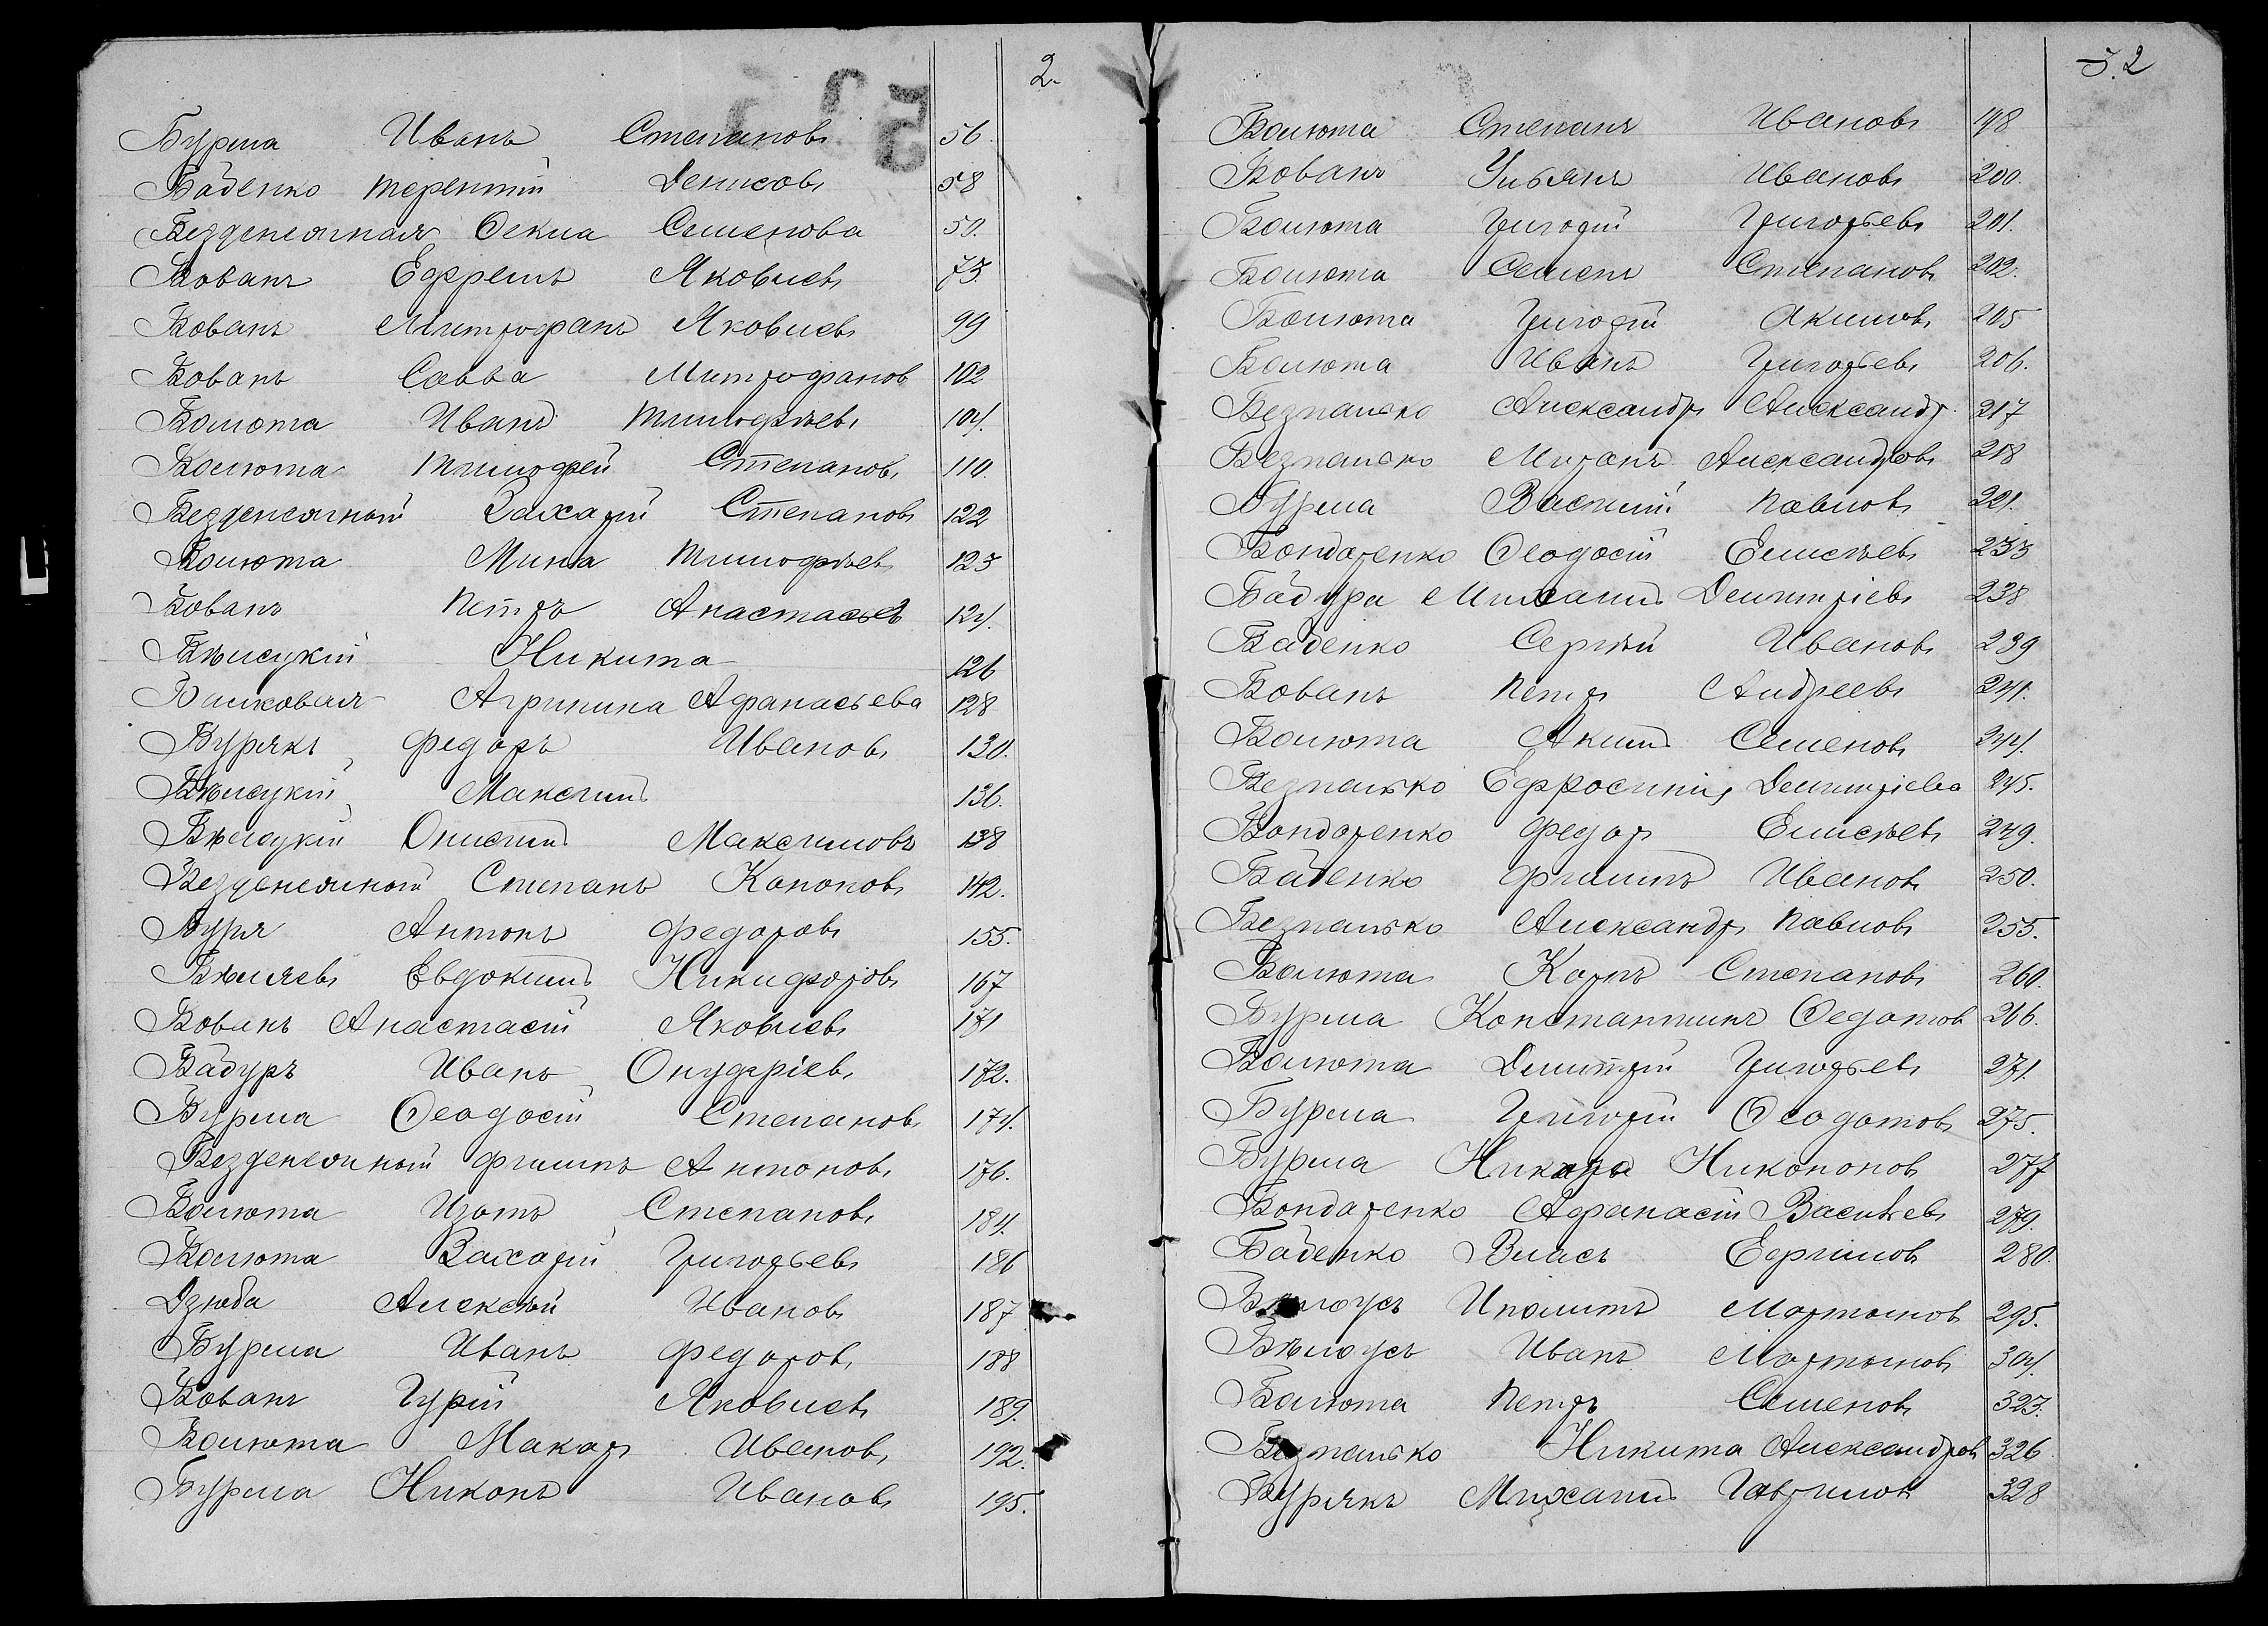 2.
Бурма Иванъ Степановъ 56.
Баденко Терентій Денисовъ 58
Безденежная Ѳекла Семенова 59.
Бованъ Ефремъ Яковлевъ 73.
Бованъ Митрофанъ Яковлевъ 99
Бованъ Савва Митрофанов 102
Болюта Иванъ Тимофѣевъ 104.
Болюта Тимофей Степановъ 110.
Безденежный Захарій Степановъ 122
Болюта Мина Тимофѣевъ 123
Бованъ Петръ Анастасьев 124.
Бѣлецкій Никита 126
Агрипина Афанасьева 128
Бурякъ Федоръ Ивановъ 130.
Бѣлецкій Максимъ 136.
Бѣлецкій Онисимъ Максимовъ 138
Безденежный Степанъ Кононовъ 142.
Буря Антонъ Федоровъ 155.
Бѣляевъ Евдокимъ Никифоровъ 167
Бованъ Анастасій Яковлевъ 171
Бадуръ Иванъ Онуфріевъ 172.
Бурма Ѳеодосій Степановъ 174.
Безденежный Филипъ Антоновъ 176.
Болюта Изотъ Степановъ 184.
Болюта Захарій Григорьевъ 186
Дзюба Алексѣй Ивановъ 187
Бурма Иванъ Федоровъ 188
Бованъ Гурій Яковлевъ 189.
Болюта Макаръ Ивановъ 192.
Бурма Никонъ Ивановъ 195.
2
Болюта Степанъ Ивановъ 198
Бованъ Ульянъ Ивановъ 200.
Болюта Григорій Григорьевъ 201.
Болюта Семенъ Степановъ 202.
Болюта Григорій Акимовъ 205
Болюта Иванъ Григорьевъ 206.
Безпалько Александръ Александр. 217
Безпалько Миронъ Александровъ 218
Бурма Василій Павловъ 221.
Бондаренко Ѳеодосій Елисѣевъ 233
Бадура Михаилъ Дмитріевъ 238
Баденко Сергѣй Ивановъ 239
Бованъ Петръ Андреевъ 241.
Болюта Акимъ Семеновъ 244.
Безпалько Ефросинія Дмитріева 245.
Бондаренко Федоръ Елисѣевъ 249.
Баденко Филипъ Ивановъ 250.
Безпалько Александръ Павловъ 255.
Болюта Карпъ Степановъ 260.
Бурма Константинъ Ѳедотов 266.
Болюта Дмитрій Григорьевъ 271.
Бурма Григорій Ѳеодотовъ 275.
Бурма Никоноровъ 277
Бондаренко Афанасій Васильевъ 279.
Баденко Власъ Ефимовъ 280.
Бѣлоусъ Иполитъ Мартыновъ 295.
Бѣлоусъ Иванъ Мартыновъ 304.
Болюта Петръ Семеновъ 323.
Безпалько Никита Александров 326
Бурякъ Михаилъ Гавриловъ 328